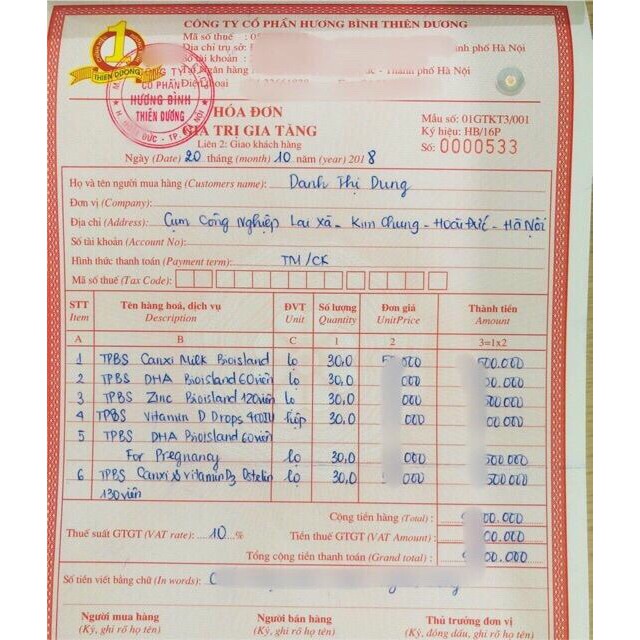 CÔNG TY CỔ PHẦN HƯƠNG BÌNH THIÊN DƯƠNG
Mã số thuế : 0
Địa chỉ trụ sở : thành phố Hà Nội
Số tài khoản :
Tại Ngân hàng Đức - Thành phố Hà Nội
Điện thoại
1
THIÊN DƯƠNG
CÔNG TY
CỔ PHẦN
HƯƠNG BÌNH
THIÊN DƯƠNG
HÓA ĐƠN
GIÁ TRỊ GIA TĂNG
Liên 2: Giao khách hàng
Ngày (Date) 20 tháng (month) 10 năm (year) 2018
Mẫu số: 01GTKT3/001
Ký hiệu: HB/16P
Số: 0000533
Họ và tên người mua hàng (Customers name): Danh Thị Dung
Đơn vị (Company):
Địa chỉ (Address): Cụm Công Nghiệp Lai Xá - Kim Chung - Hoài Đức - Hà Nội
Số tài khoản (Account No):
Hình thức thanh toán (Payment term): TM/CK
Mã số thuế (Tax Code):
STT Tên hàng hoá, dịch vụ ĐVT Số lượng Đơn giá Thành tiền
Item Description Unit Quantity UnitPrice Amount
A B C 1 2 3=1x2
1 TPBS Canxi Milk Bioisland lọ 30,0 000 500.000
2 TPBS DHA Bioisland 60 viên lọ 30,0 000 00.000
3 TPBS Zinc Bioisland 120 viên lọ 30,0 000 00.000
4 TPBS Vitamin D Drops 400IU hộp 30,0 000 00.000
5 TPBS DHA Bioisland 60 viên
For Pregnancy lọ 30,0 000 500.000
6 TPBS Canxi & vitamin D3 Ostelin lọ 30,0 000 500.000
130 viên
Cộng tiền hàng (Total) : 00.000
Thuế suất GTGT (VAT rate): 10 % Tiền thuế GTGT (VAT Amount) : 00.000
Tổng cộng tiền thanh toán (Grand total) : 00.000
Số tiền viết bằng chữ (In words):
Người mua hàng Người bán hàng Thủ trưởng đơn vị
(Ký, ghi rõ họ tên) (Ký, ghi rõ họ tên) (Ký, đóng dấu, ghi rõ họ tên)